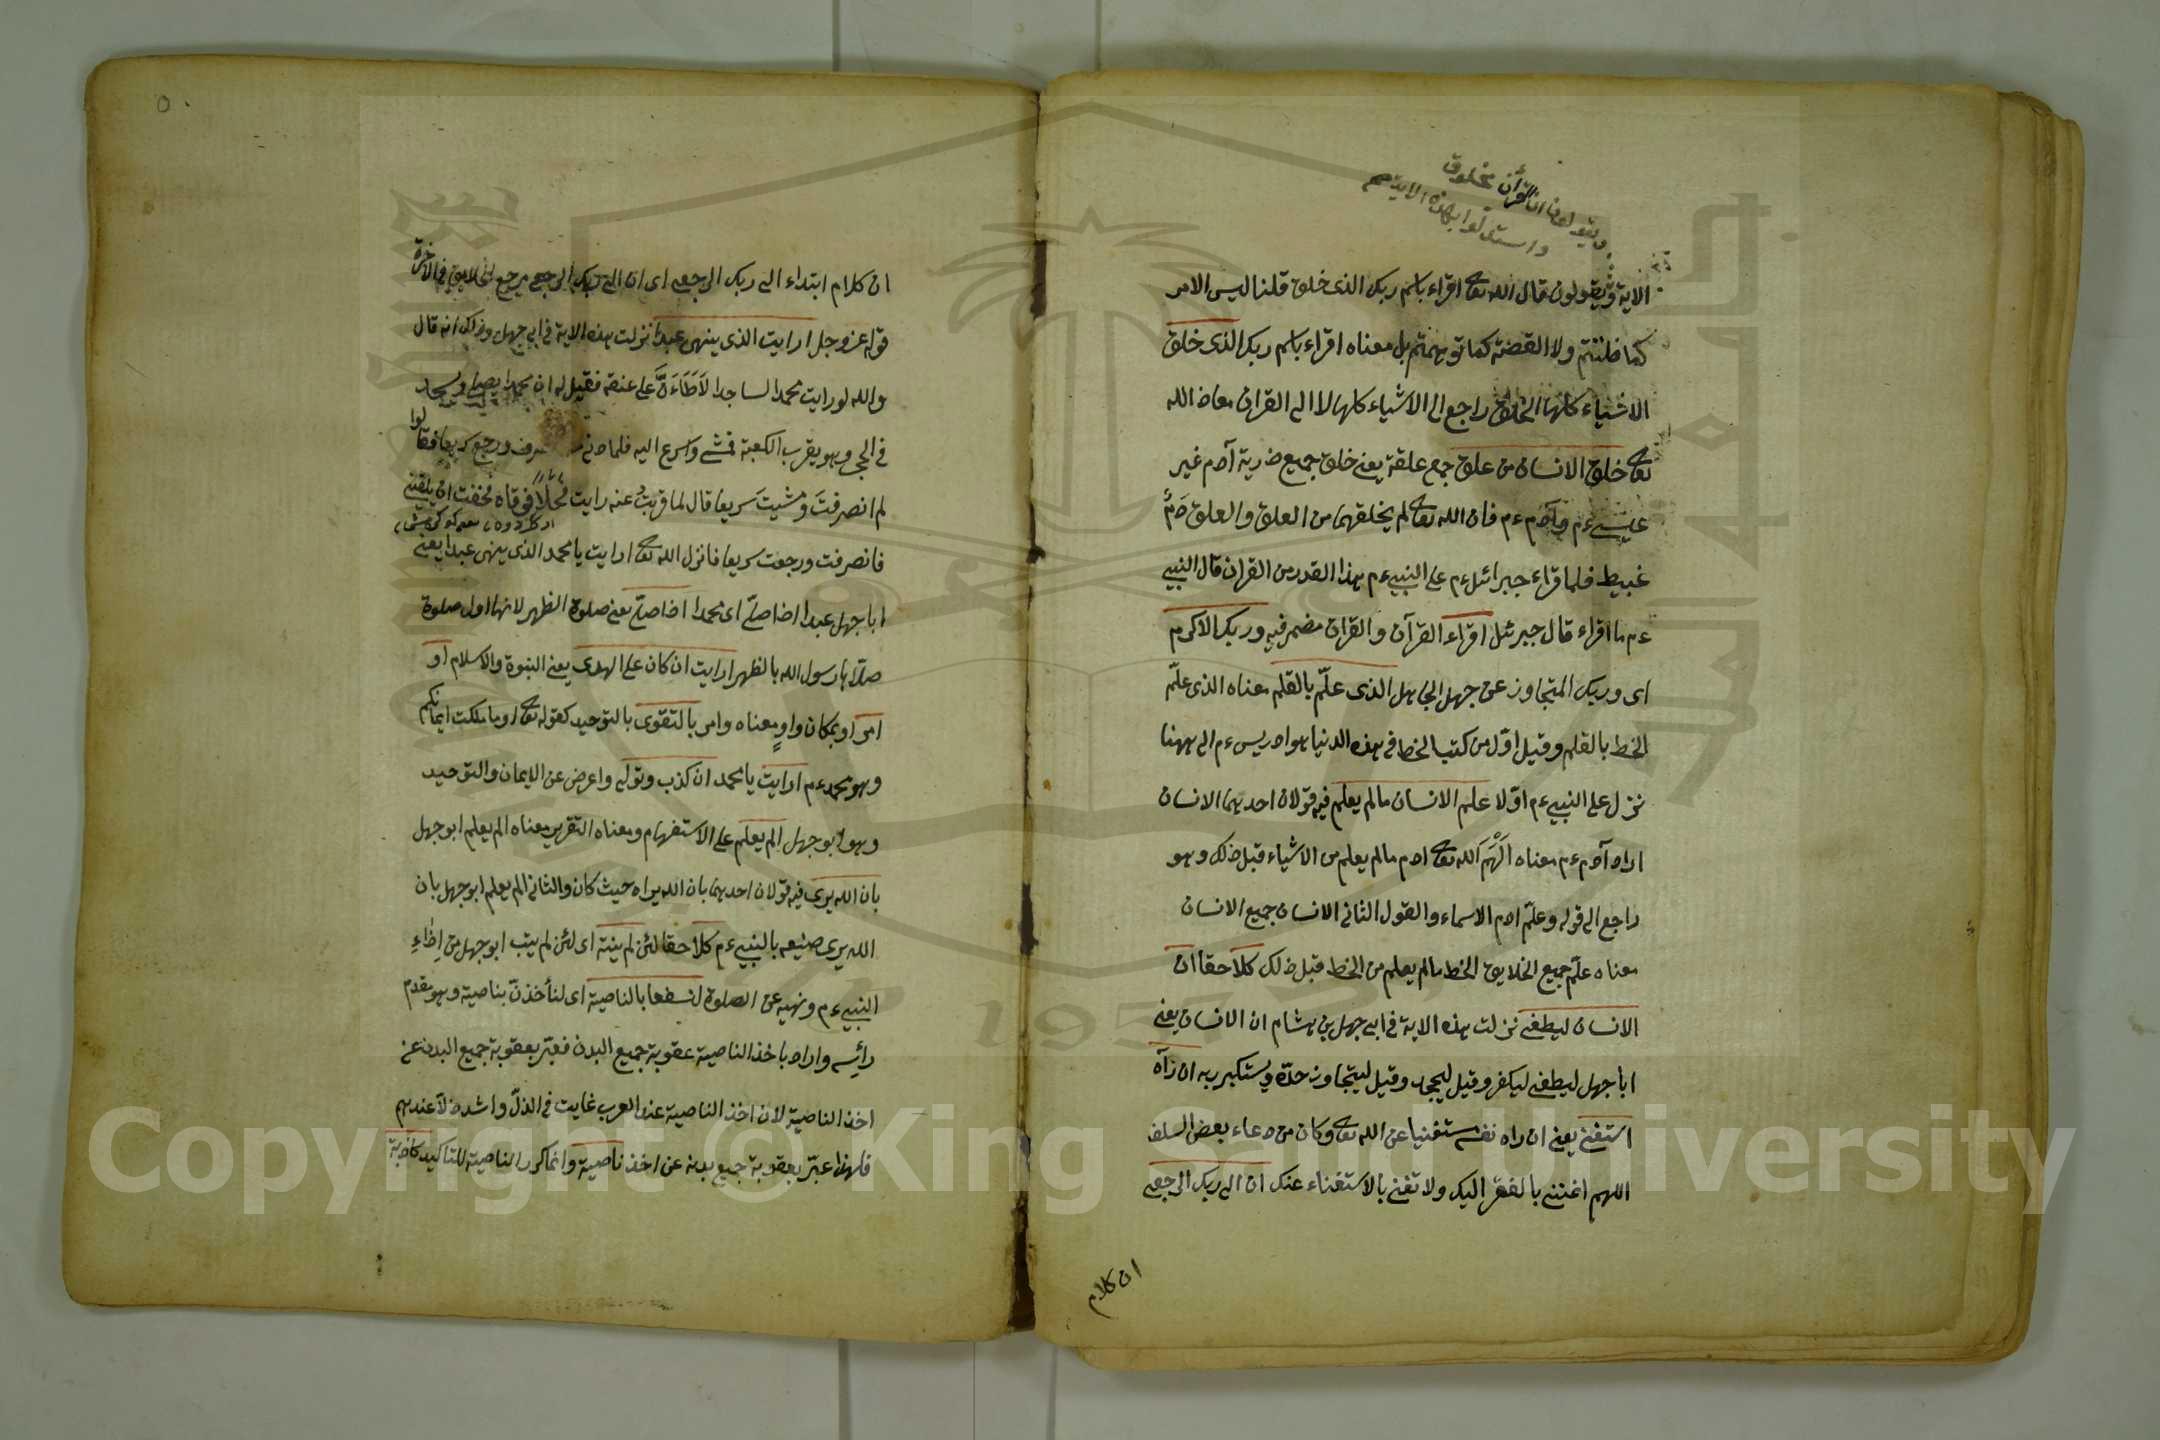 ويقولون ان القرأن مخلوق
واستدلوا بهذه الاية صح
الاية ويقولون قال الله تعا اقراء باسم ربك الذى خلق قلنا ليس الامر
كما ظننتم ولا القضية كما توهمتم بل معناه اقراء باسم ربك الذى خلق
الاشياء كلها الخلق راجع الى الاشياء كلها لا الى القران معاذ الله
تعا خلق الانسان من علق جمع علقة يعنى خلق جميع ذرية آدم غير
عيسى ءم وآدم ءم فان الله تعا لم يخلقهما من العلق والعلق دَمٌ
غبيط فلما قراء جبرائل ءم على النبى ءم هذا القدر من القران قال النبى
ءم ما اقراء قال جبرئل اقراء القرآن والقران مضمر فيه وربك الاكرم
اى وربك المتجاوز عن جهل الجاهل الذى علّم بالقلم معناه الذى علّم
الخط بالقلم وقيل اوّل من كتب الخط فى هذه الدنيا هو ادريس ءم الى ههنا
نزل على النبى ءم اوّلا علم الانسان ما لم يعلم فيه قولان احدهما الانسان
اراد آدم ءم معناه اَلْهَمَ الله تعا ادم ما لم يعلم من الاشياء قبل ذلك وهو
راجع الى قوله وعلّم ادم الاسماء والقول الثانى الانسان جميع الانسان
معناه علّم جميع الخلايق الخط ما لم يعلم من الخط قبل ذلك كلا حقا ان
الانسان ليطغى نزلت هذه الاية فى ابى جهل بن هشام ان الانسان يعنى
ابا جهل ليطغى ليكفر وقيل ليجحد وقيل ليتجاوز حدّه ويستكبر ربه ان رآه
استغنى يعنى ان راه نفسه مستغنيا عن الله تعا وكان من دعاء بعض السلف
اللهم اغننى بالفقر اليك ولا تغنى بالاستغناء عنك ان الى ربك الرجعى
ان كلام
٥٠
ان كلام ابتداء الى ربك الرجعى اى ان الى ربك الرجعى مرجع الخلايق فى الاخرة
قوله عز وجل ارايت الذى ينهى عبدا نزلت هذه الاية فى ابى جهل وذلك انه قال
والله لو رايت محمدا الساجدا لاَطَاءَنَّ على عنقه فقيل له ان محمدا يصلى ويسجد
فى الحجر وهو يقرب الكعبة فمشى واسرع اليه فلما دنى ورجع سريعا فقالوا
لم انصرفتَ ومشيتَ سريعا قال لما قربتُ عنه رايت فحلا فوقاه فخفت ان يلقينى
فانصرفت ورجعت سريعا فانزل الله تعا ارايت يا محمد الذى ينهى عبدا يعنى
ابا جهل عبدا اذا صلّى اى محمدا اذا صلّى يعنى صلوة الظهر لانها اول صلوة
صلّاها رسول الله بالظهر ارايت ان كان على الهدى يعنى النبوة والاسلام او
امر او بمكان واوٍ معناه وامر بالتقوى بالتوحيد كقوله تعا او ما ملكت ايمانكم
وهو محمد ءم ارايت يا محمد ان كذب وتولى واعرض عن الايمان والتوحيد
وهو ابو جهل الم يعلم على الاستفهام ومعناه التقرير معناه الم يعلم ابو جهل
بان الله يرى فيه قولان احدهما بان الله يراه حيث كان والثانى الم يعلم ابو جهل بان
الله يرى صنيعه بالنبى ءم كلا حقا لئن لم ينته اى لئن لم يتب ابو جهل من اِذاءِ
النبى ءم ونهيه عن الصلوة لنسفعا بالناصية اى لنأخذنّ بناصية وهو مقدم
رائسه واراد باخذ الناصية عقوبة جميع البدن فعبّر بعقوبة جميع البدن عن
اخذ الناصية لان اخذ الناصية عند العرب غايت فى الذلّ واشد ذلّا عندهم
فلهذا عبّر بعقوبة جميع بدنه عن اخذ ناصية وانما كرر الناصية للتاكيد كاذبة
Copyright © King Saud University
1957